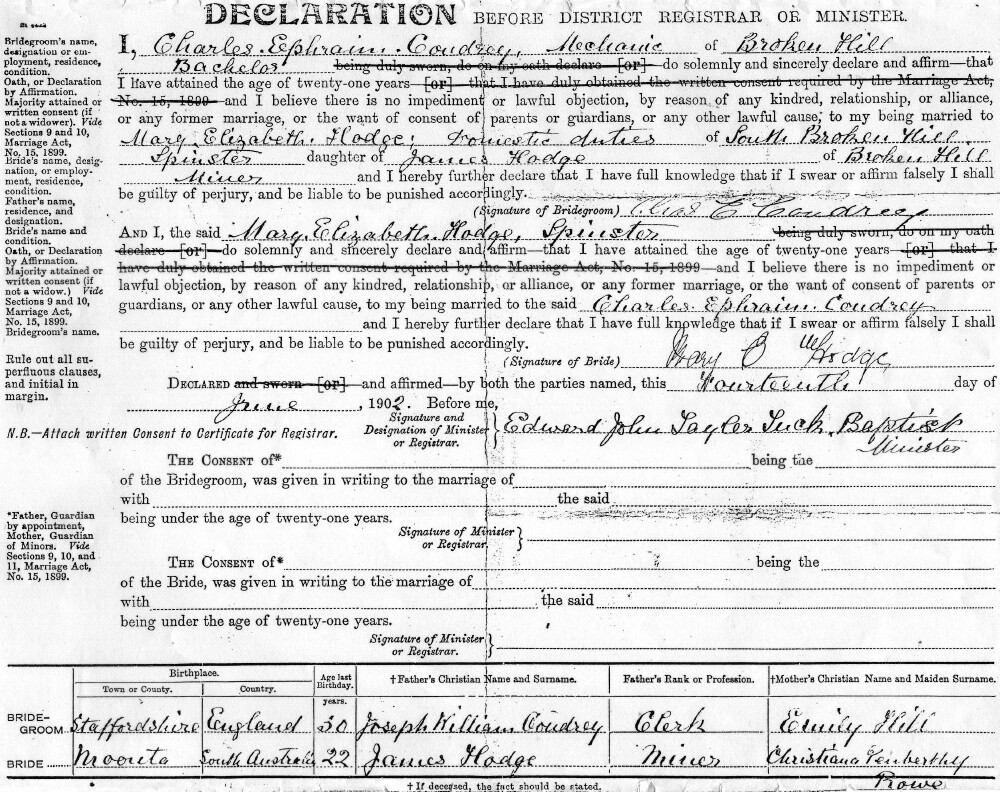 DECLARATION BEFORE DISTRICT REGISTRAR OR MINISTER.
Bridegroom's name, designation or employment, residence, condition.
Oath, or Declaration by Affirmation.
Majority attained or written consent (if not a widower). Vide Sections 9 and 10, Marriage Act, No. 15, 1899.
Bride's name, designation, or employment, residence, condition.
Father's name, residence, and designation.
Bride's name and condition.
Oath, or Declaration by Affirmation.
Majority attained or written consent (if not a widow.) Vide Sections 9 and 10, Marriage Act, No. 15, 1899.
Bridegroom's name.
Rule out all superfluous clauses, and initial in margin.
I, Charles Ephraim Coudrey, Mechanic of Broken Hill
Bachelor being duly sworn, do on my oath declare—[or]—do solemnly and sincerely declare and affirm—that
I have attained the age of twenty-one years—[or]—that I have duly obtained the written consent required by the Marriage Act,
No. 15, 1899—and I believe there is no impediment or lawful objection, by reason of any kindred, relationship, or alliance,
or any former marriage, or the want of consent of parents or guardians, or any other lawful cause, to my being married to
Mary Elizabeth Hodge, Domestic duties of South Broken Hill
Spinster daughter of James Hodge of Broken Hill
Miner and I hereby further declare that I have full knowledge that if I swear or affirm falsely I shall
be guilty of perjury, and be liable to be punished accordingly.
(Signature of Bridegroom) Chas E Coudrey
AND I, the said Mary Elizabeth Hodge, Spinster being duly sworn, do on my oath
declare—[or]—do solemnly and sincerely declare and affirm—that I have attained the age of twenty-one years—[or]—that I
have duly obtained the written consent required by the Marriage Act, No. 15, 1899—and I believe there is no impediment or
lawful objection, by reason of any kindred, relationship, or alliance, or any former marriage, or the want of consent of parents or
guardians, or any other lawful cause, to my being married to the said Charles Ephraim Coudrey
and I hereby further declare that I have full knowledge that if I swear or affirm falsely I shall
be guilty of perjury, and be liable to be punished accordingly.
(Signature of Bride) Mary E Hodge
DECLARED and sworn—[or]—and affirmed—by both the parties named, this Fourteenth day of
June, 1902. Before me,
N.B.—Attach written Consent to Certificate for Registrar.
Signature and Designation of Minister or Registrar. } Edward John Tayler Tuck, Baptist
Minister
THE CONSENT OF* being the
of the Bridegroom, was given in writing to the marriage of
with the said
being under the age of twenty-one years.
Signature of Minister or Registrar. }
*Father, Guardian by appointment, Mother, Guardian of Minors. Vide Sections 9, 10, and 11, Marriage Act, No. 15, 1899.
THE CONSENT OF* being the
of the Bride, was given in writing to the marriage of
with the said
being under the age of twenty-one years.
Signature of Minister or Registrar. }
Birthplace. Age last Birthday. †Father's Christian Name and Surname. Father's Rank or Profession. †Mother's Christian Name and Maiden Surname.
Town or County. Country. years.
BRIDEGROOM Staffordshire England 30 Joseph William Coudrey Clerk Emily Hill
BRIDE Moonta South Australia 22 James Hodge Miner Christiana Penberthy
Rowe
† If deceased, the fact should be stated.